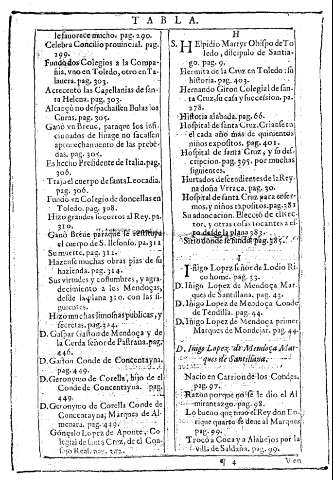 TABLA.
le favorece mucho. pag. 290.
Celebra Concilio provincial. pag.
299.
Fundò dos Colegios a la Compa-
ñia, vno en Toledo, otro en Ta-
lauera. pag. 303.
Acrecentò las Capellanias de san-
ta Helena. pag. 303.
Alcançò no despachassen Bulas los
Curas. pag. 305.
Ganò en Breue, paraque los infi-
cionados de linage no fuessen
aprouechamiento de las preben-
das. pag. 305.
Es hecho Presidente de Italia. pag.
306.
Traja el cuerpo de santa Leocadia.
pag. 306.
Fundò en Colegio de doncellas en
Toledo. pag. 308.
Hizo grandes socorros al Rey. pa.
310.
Ganò Breue paraque se restituya
el cuerpo de S. Ilefonso. pa. 311
Su muerte. pag. 312.
Hazense muchas obras pias de su
hazienda. pag. 314.
Sus virtudes y costumbres, y agra-
decimiento a los Mendoças,
desde la plana 320. con las si-
guientes.
Hizo muchas limosnas publicas, y
secretas. pag. 324.
D. Gaspar Gaston de Mendoça y de
la Cerda señor de Pastrana. pag.
446.
D. Gaston Conde de Concentayna.
pag. 449.
D. Geronymo de Corella, hijo de el
Conde de Concentayna. pag.
449.
D. Geronymo de Corella Conde de
Concentayna, Marques de Al-
menara. pag. 449.
Gonçalo Lopez de Aponte, Co-
legial de santa Cruz, de el Con-
sejo Real. pag. 282.
H
S. Helpidio Martyr Obispo de To-
ledo, discipulo de Santia-
go. pag. 9.
Hermita de la Cruz en Toledo: su
historia. pag. 403.
Hernando Giron Colegial de san-
ta Cruz, su casa y succession. pa.
278.
Historia alabada. pag. 66.
Hospital de santa Cruz. Crianse en
el cada año mas de quinientos
niños expositos. pag. 401.
Hospital de santa Cruz, y su des-
cripcion. pag. 395. por muchas
siguientes.
Hurtados descendientes de la Rey-
na doña Vrraca. pag. 30.
Hospital de santa Cruz para enfer-
mos, y niños expositos. pag. 381
Su aduocacion. Eleccio de el re-
ctor, y otras cosas tocantes a el-
lo desde la plana 383.
Sitio donde se funda. pag. 385.
I
Iñigo Lopez señor de Lodio Ri-
co home. pag. 33.
D. Iñigo Lopez de Mendoça Mar-
ques de Santillana. pag. 43.
D. Iñigo Lopez de Mendoça Conde
de Tendilla. pag. 44.
D. Iñigo Lopez de Mendoça primer
Marques de Mondejar. pag. 44.
D. Iñigo Lopez de Mendoça Mar-
ques de Santillana.
Naciò en Carrion de los Condes.
pag. 97.
Razon porque no se le dio el Al-
mirantazgo. pag. 98.
Lo bueno que tuuo el Rey don En-
rique quarto se deue al Marques
pag. 99.
Trocò a Coca y Alahejos por la
villa de Saldaña. pag. 99.
¶ 4
Ven